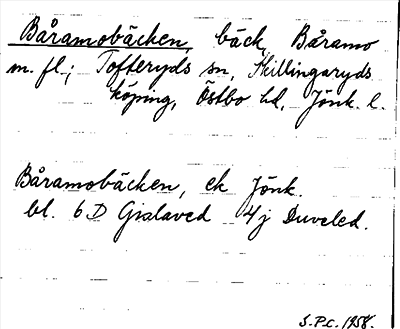 Båramobäcken, bäck, Båramo
m. fl.; Tofteryds sn, Skillingaryds
köping, Östbo hd, Jönk. l.
Båramobäcken, ek Jönk.
bl. 6D Gislaved 4j Duveled.
S.P.c. 1958.